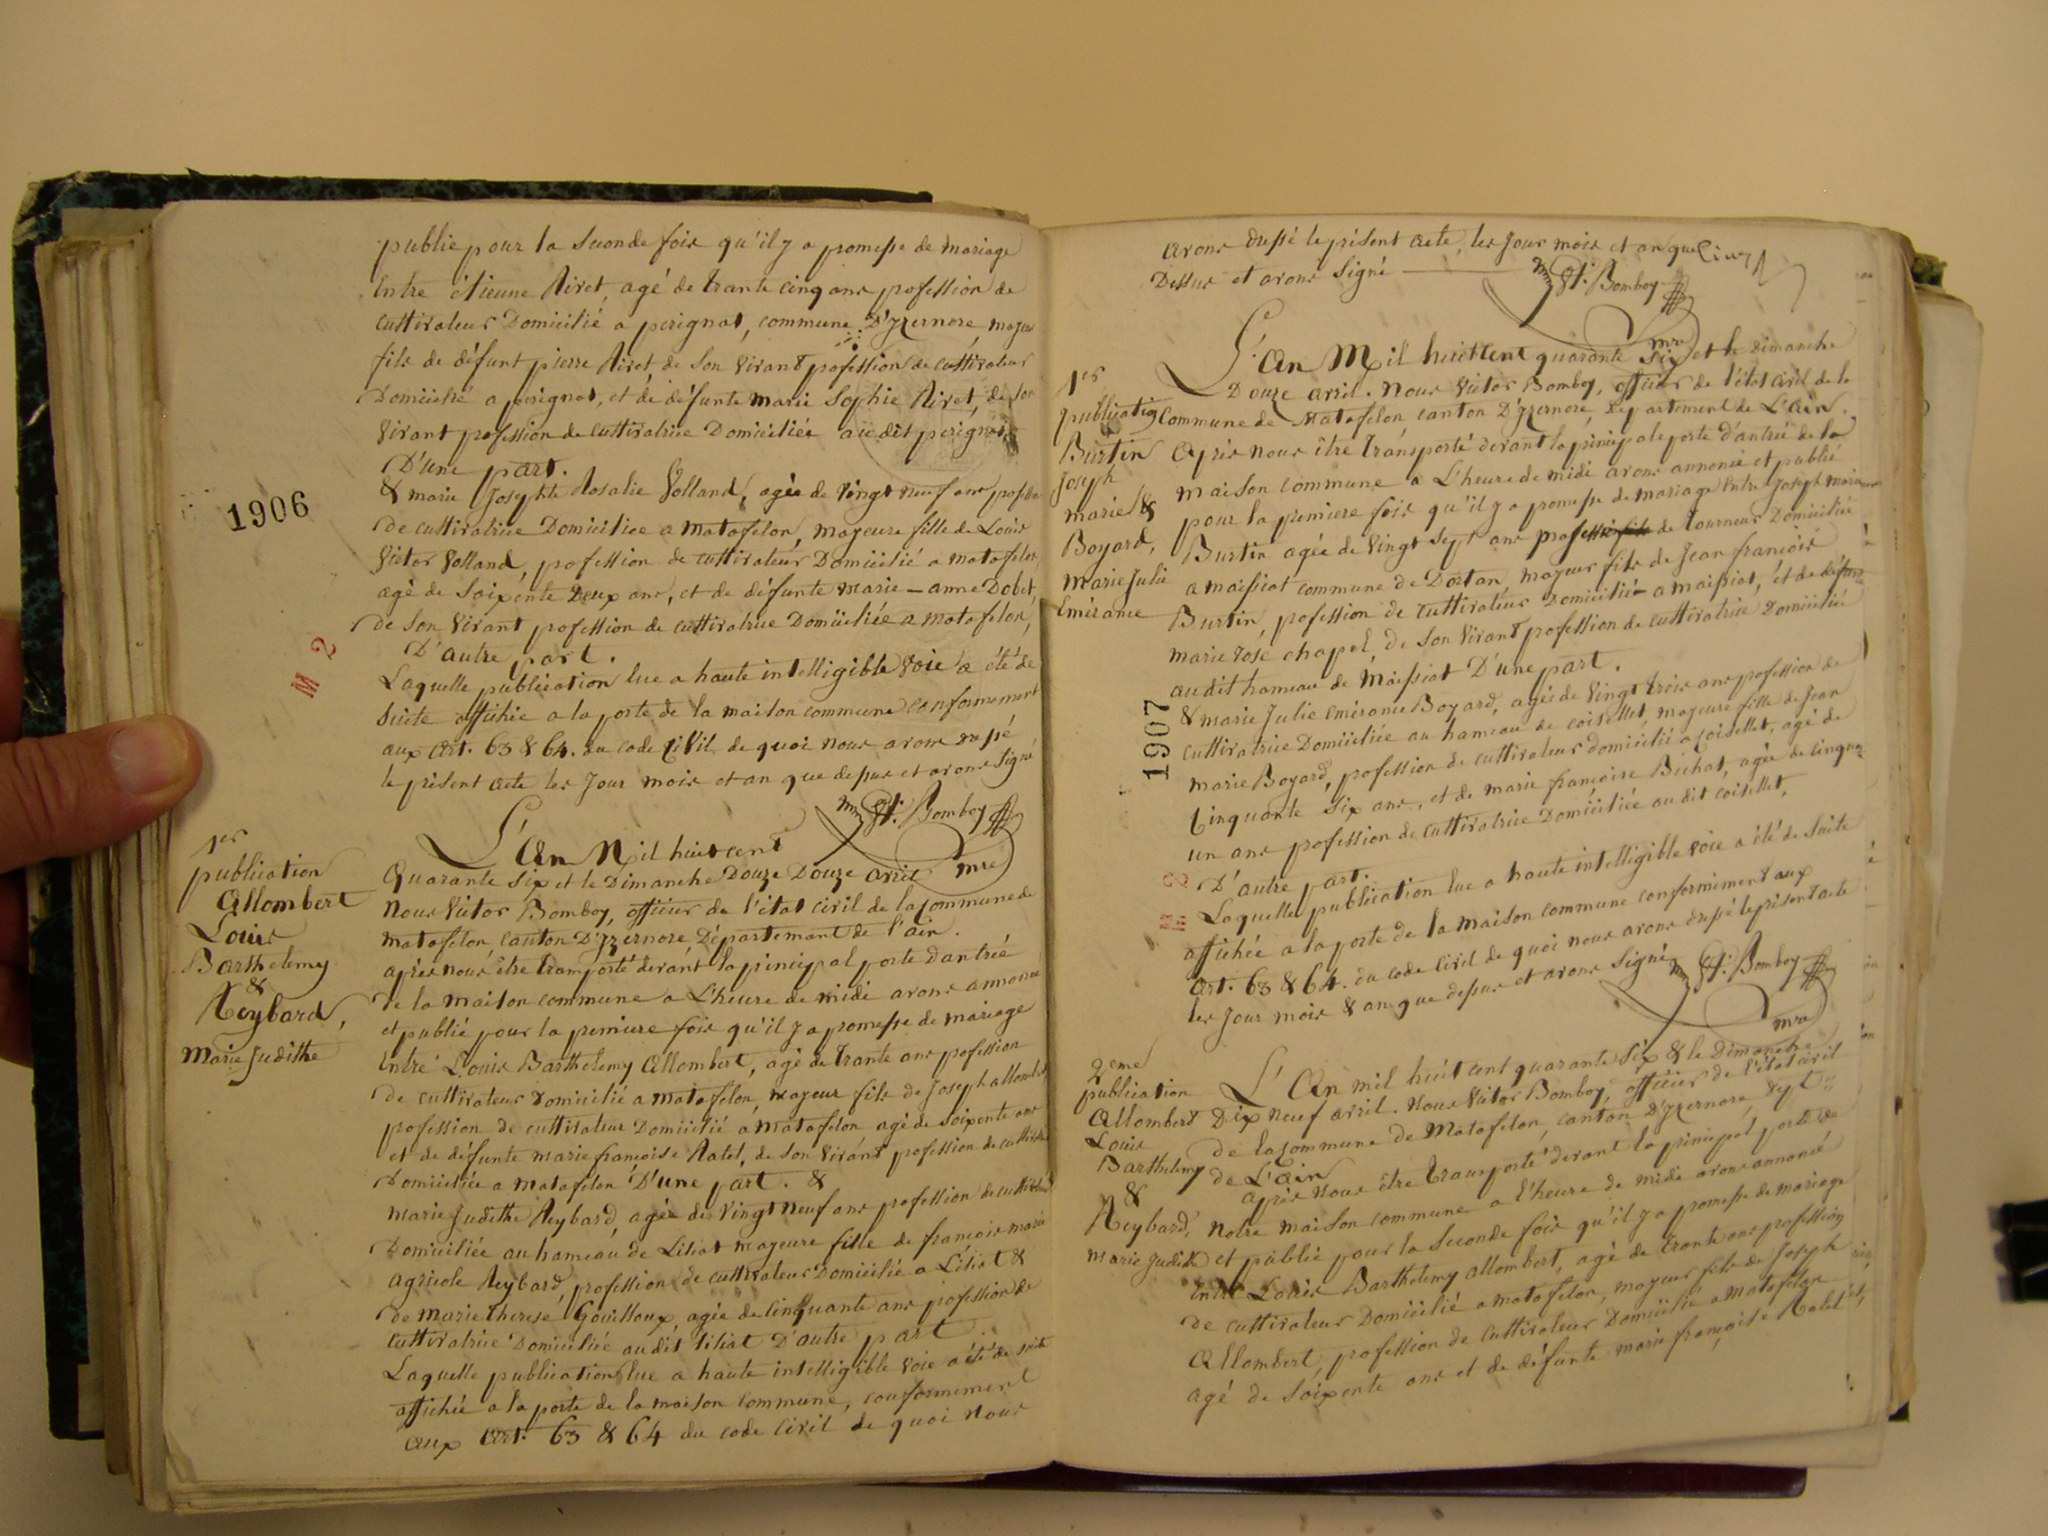 publié pour la seconde fois qu'il y a promesse de mariage
Entre étienne Rivet, agé de trante cinq ans profession de
cultivateur Domicilié a perignat, commune D'yzernore, majeur
fils de défunt pierre Rivet, de son vivant profession de cultivateur
Domicilié a perignat, et de défunte marie Sophie Rivet, de son
vivant profession de cultivatrice Domiciliée au dit perignat
D'une part.
& marie Josephte Rosalie Volland, agée de vingt neuf ans profession
de cultivatrice Domiciliée a matafelon, majeure fille de Louis
victor Volland, profession de cultivateur Domicilié a matafelon
agé de soixente Deux ans, et de défunte marie-anne Dobet,
de son vivant profession de cultivatrice Domiciliée a matafelon,
D'autre part.
Laquelle publication lue a haute intelligible voie a été de
suite affichée a la porte de la maison commune conformement
aux art. 63 & 64. du code Civil de quoi nous avons dressé
le présent acte les Jour mois et an que dessus et avons signé
1906
M 2
Vt. Bomboy
mre
1er
publication
Allombert
Louis
Barthelemy
&
Reybard,
Marie Judithe
L'An Mil huit cent
Quarante six et le Dimanche Douze Douze avril
Nous Victor Bomboy, officier de l'état civil de la commune de
matafelon canton D'yzernore, Département de l'ain.
après nous être transporté devant la principal porte dantrée
de la maison commune a L'heure de midi avons annoncé
et publié pour la premiere fois qu'il y a promesse de mariage
Entre Louis Barthelemy Allombert, agé de trante ans profession
de cultivateur Domicilié a matafelon, majeur fils de Joseph allombert
profession de cultivateur Domicilié a matafelon agé de soixente ans
et de défunte marie françoise Ratel, de son vivant profession de cultivatrice
Domiciliée a matafelon D'une part. &
Marie Judithe Reybard, agée de vingt neuf ans profession de cultivatrice
Domiciliée au hameau de Liliat majeure fille de francois marie
agricole Reybard, profession de cultivateur Domicilié a Liliat &
de marie therese Gouilloux, agée de Cinquante ans profession de
cultivatrice Domiciliée au dit liliat D'autre part
Laquelle publication lue a haute intelligible voie a été de suite
affichée a la porte de la maison commune, conformement
aux art. 63 & 64 du code Civil de quoi nous
avons dressé le présent acte, les Jour mois et an que
Dessus et avons signé
Vt. Bomboy
mre
1er
publication
Burtin
Joseph
marie &
Boyard,
Marie Julie
Emérance
L'An Mil huit cent quarante six et le dimanche
Douze avril. Nous Victor Bomboy, officier de l'état civil de la
Commune de Matafelon, canton D'yzernore, Département de L'ain.
Après nous être transporté devant la principale porte d'antrée de la
maison commune a L'heure de midi avons annoncé et publié
pour la premiere fois qu'il y a promesse de mariage Entre Joseph marie
Burtin agée de vingt sept ans profession de tourneur Domicilié
a maissiat commune de Dortan, majeur fils de Jean francois
Burtin, profession de cultivateur Domicilié a maissiat, et de défunte
marie rose chapel, de son vivant profession de cultivatrice Domiciliée
au dit hameau de Maissiat D'une part.
& marie Julie emérance Boyard, agée de vingt trois ans profession de
cultivatrice Domiciliée au hameau de coisellet, majeure fille de Jean
marie Boyard, profession de cultivateur domicilié a coisellet, agé de
Cinquante six ans, et de marie françoise Bichat, agée de cinquante
un ans profession de cultivatrice Domiciliée au dit coisellet.
D'autre part.
Laquelle publication lue a haute intelligible voie a été de suite
affichée a la porte de la maison commune conformément aux
art. 63 & 64. du code Civil de quoi nous avons dressé le présent acte
les Jour mois & an que dessus et avons signé
1907
M 2
Vt. Bomboy
mre
2eme
publication
Allombert
Louis
Barthelemy
&
Reybard,
Marie Judith
L'An mil huit cent quarante six & le dimanche
Dix neuf avril. Nous Victor Bomboy, officier de l'état civil
de la commune de Matafelon, canton D'yzernore, Dept
de L'ain
après nous être transporté devant la principal porte de
notre maison commune a l'heure de midi avons annoncé
et publié pour la seconde fois qu'il y a promesse de mariage
Entre Louis Barthelemy allombert, agé de trante ans profession
de cultivateur Domicilié a matafelon, majeur fils de Joseph
Allombert, profession de cultivateur Domicilié a matafelon
agé de soixente ans et de défunte marie françoise Ratel